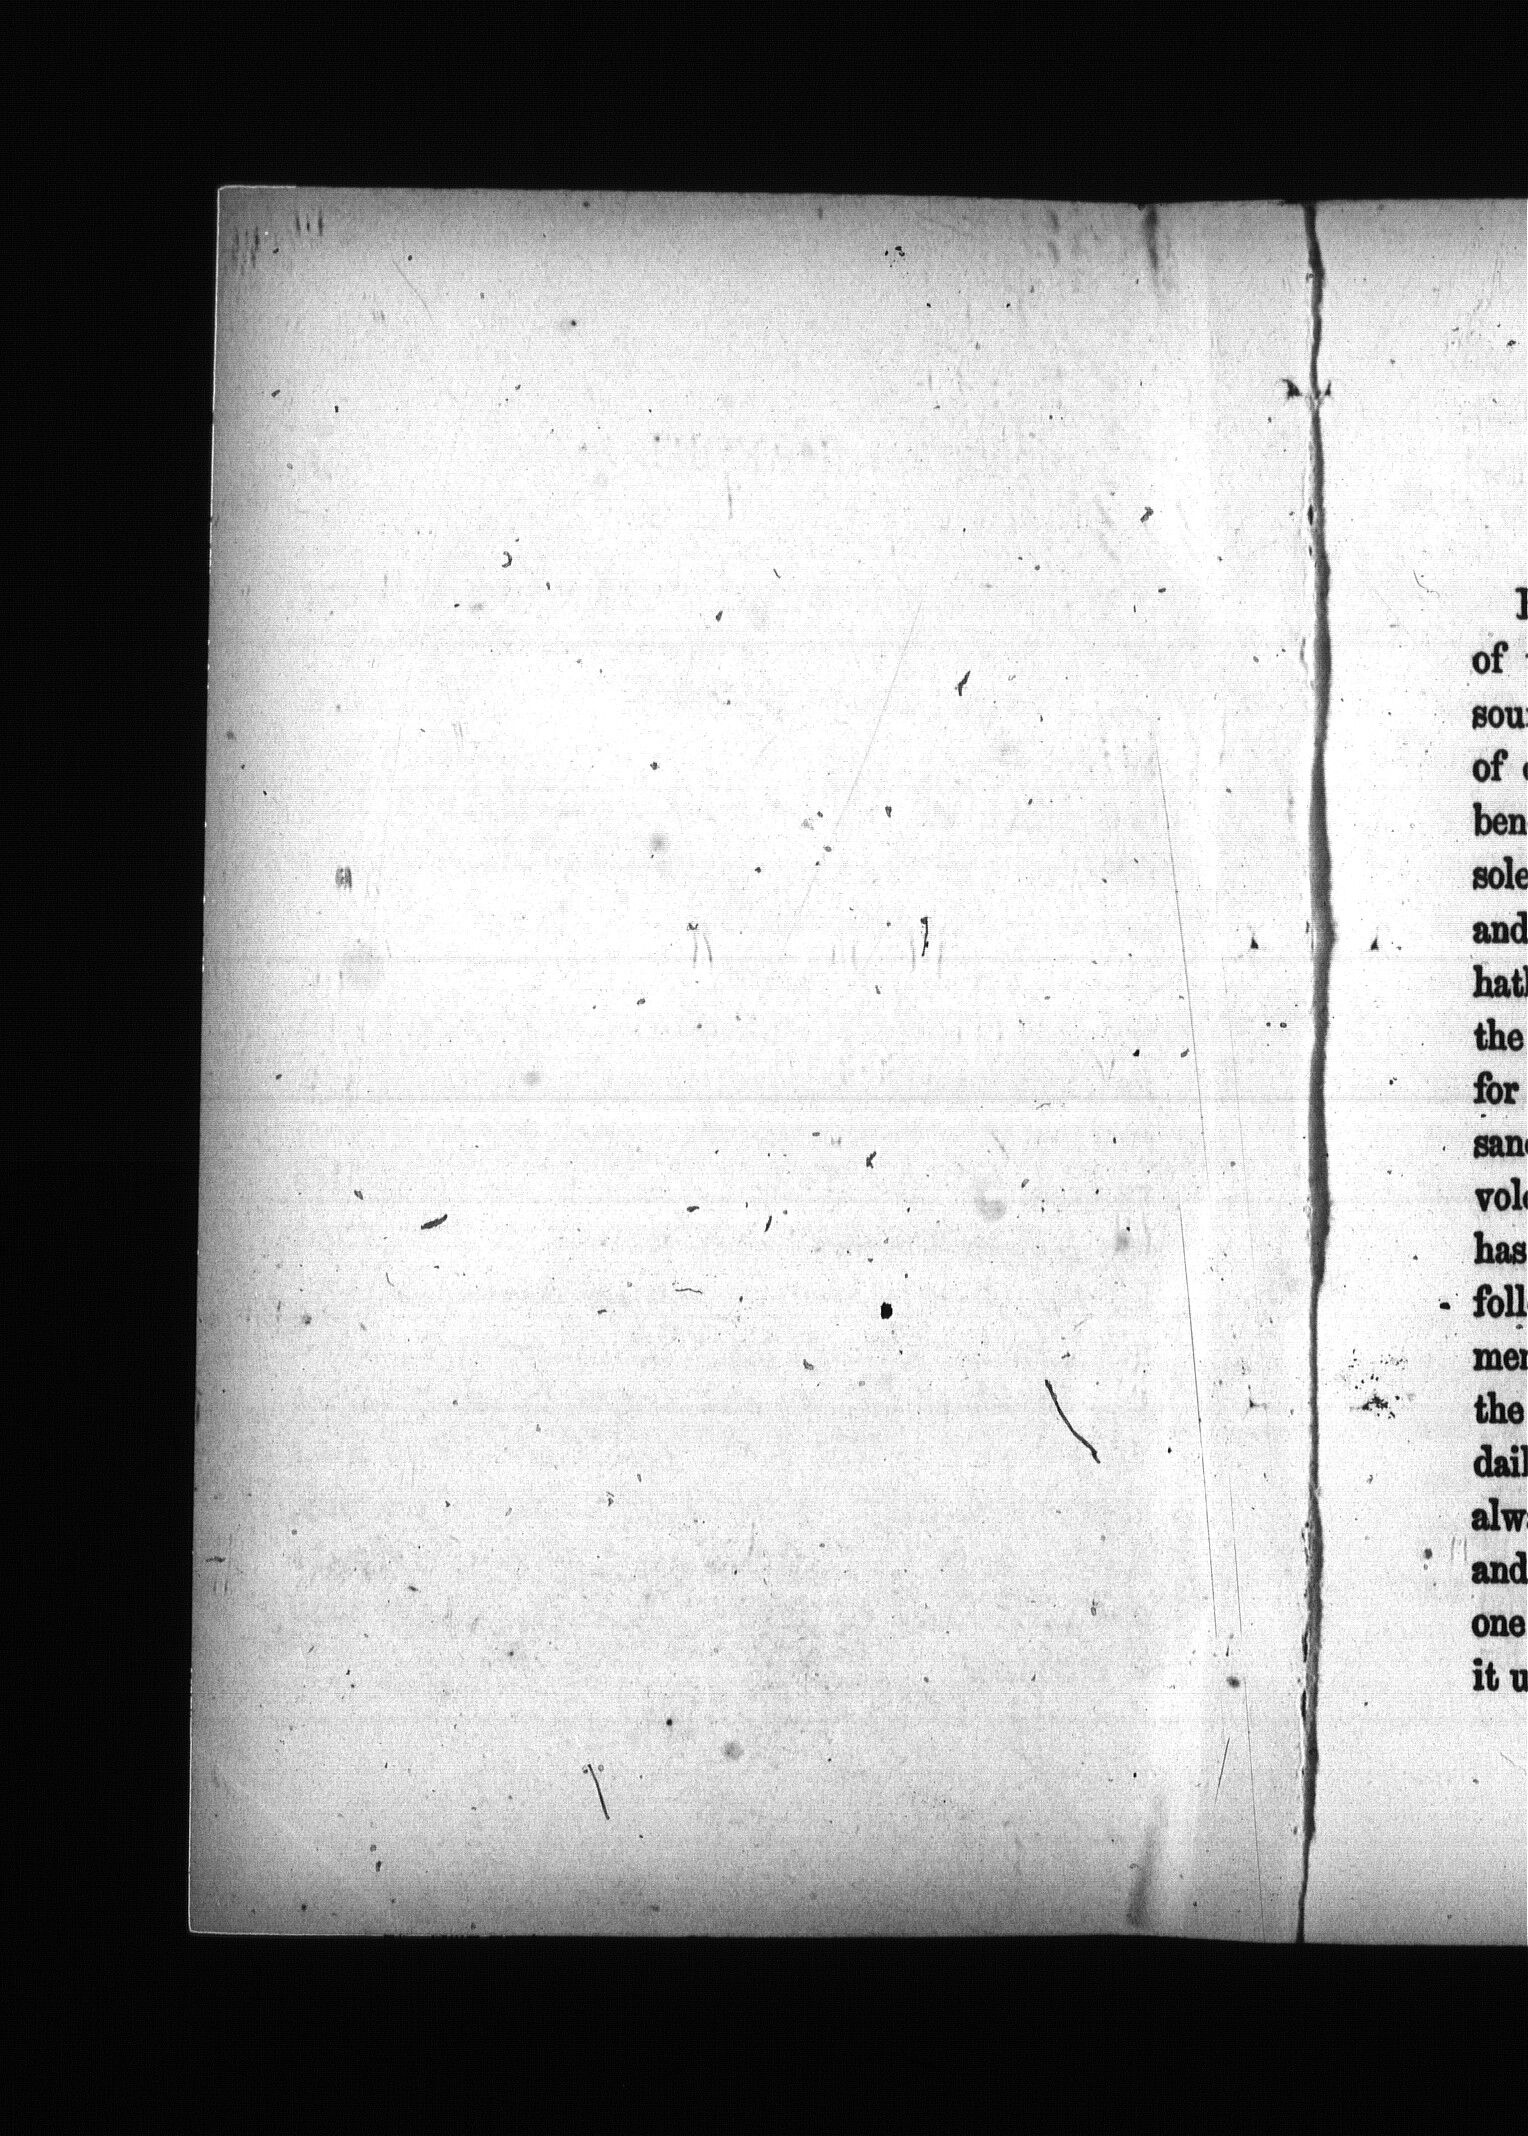 of
sou
of
ben
sole
and
hath
the
for
sanc
volc
has
foll
mer
the
dail
alwa
and
one
it u